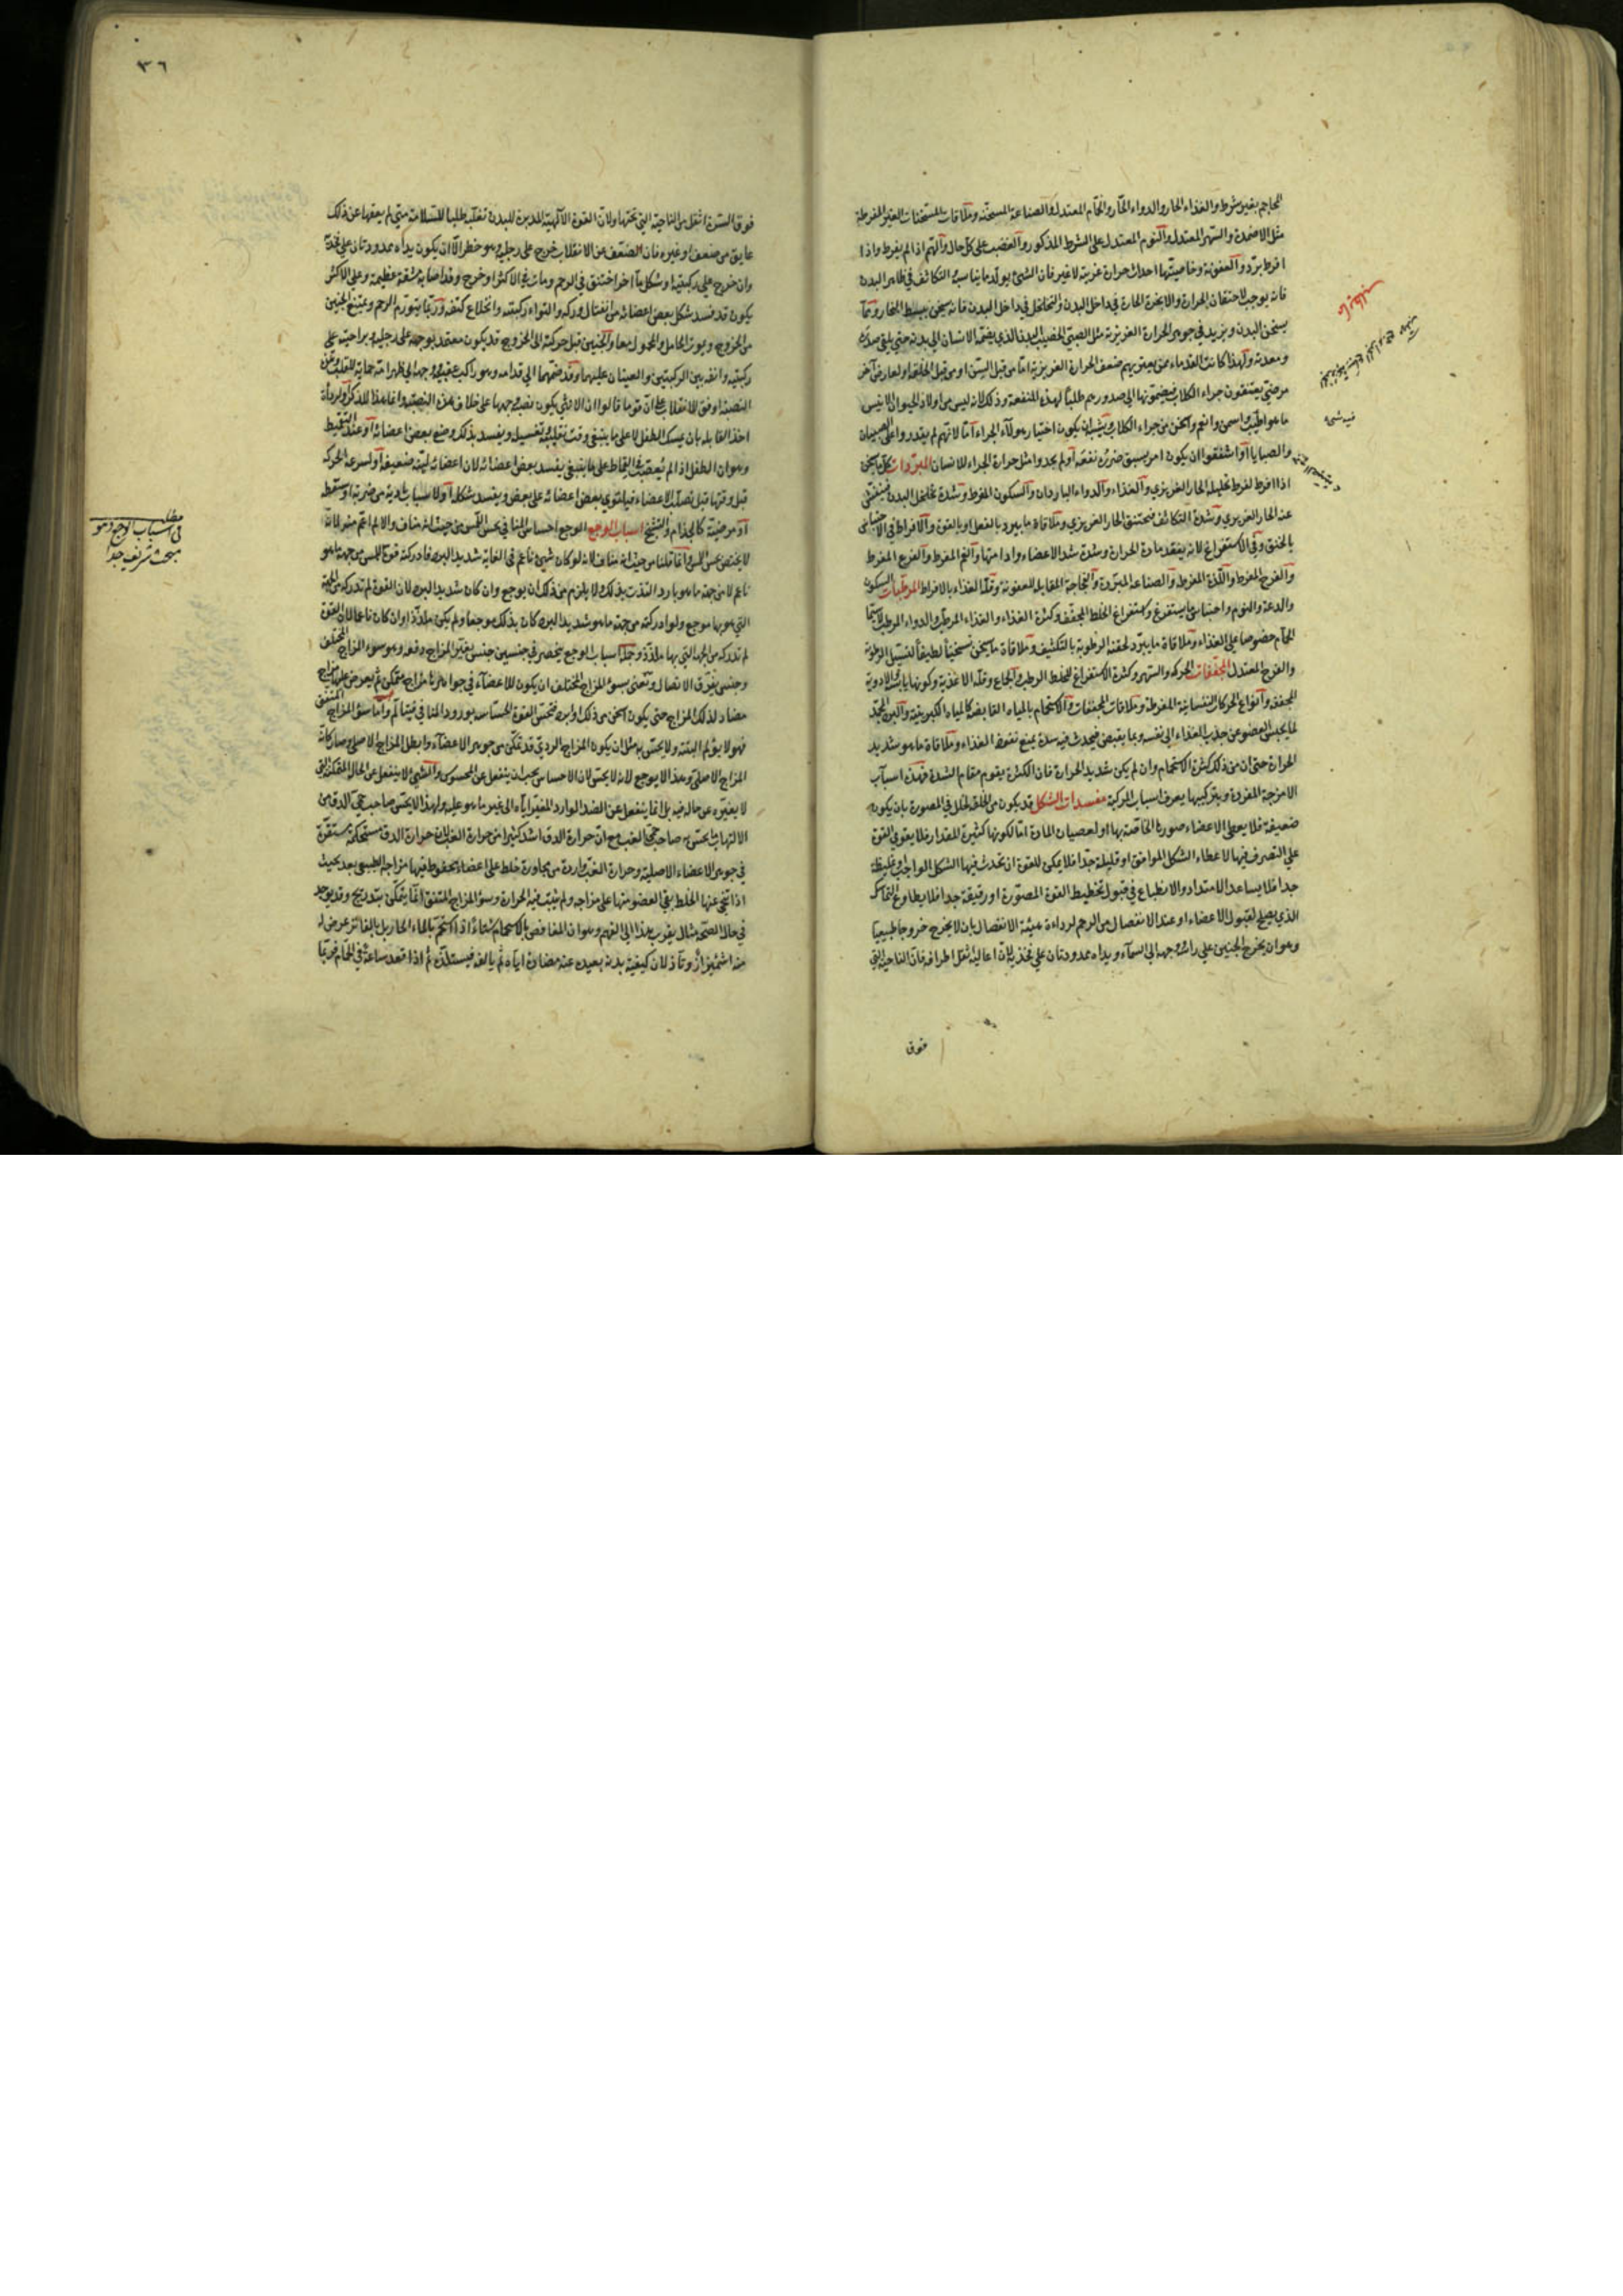 المحاجم بغير شرط والغذاء الحار والدواء الحار والحمام المعتدل والصناعة المسخنة وملاقات المسخنات الغير المفرطة
مثل الاضمدة والسهر المعتدل والنوم المعتدل على الشرط المذكور والغضب على كل حال والهم اذا لم يفرط واذا
افرط برد والعفونة وخاصيتها احداث حرارة غريبة لا غير
فانه يوجب لاحتقان الحرارة والابخرة الحارة في داخل البدن والتخلخل في داخل البدن فانه يسخن ببسط البخار
يسخن البدن ويزيد في جوهر الحرارة الغريزية مثل الصبي الخصيب البدن الذي يضمه الانسان الى بدنه حتى يلقى صدره
ومعدته ولهذا كانت القدماء ممن يعتريهم ضعف الحرارة الغريزية اما من قبل السن او من قبل الخلقة او لعارض آخر
مرضي يعتنقون جراء الكلاب فيضمونها الى صدورهم طلبا لهذه المنفعة وذلك لانه ليس من اولاد الحيوان الانيس
ما هو اطيب واسمن وانعم واسخن من جراء الكلاب ويشبه ان يكون اختيارهم لا لجراء اما لانهم لم يقدروا على الصبيان
والصبايا او اشفقوا ان يكون امر يسبق ضرره نفعه او لم يجدوا مثل حرارة الجراء للانسان المبردات كل ما يسخن
اذا افرط لفرط تحليله الحار الغريزي والغذاء والدواء الباردان والسكون المفرط وشدة تخلخل البدن فينفش
عنه الحار الغريزي وشدة التكاثف فيختنق الحار الغريزي وملاقاة ما يبرد بالفعل او بالقوة والافراط في الاحتباس
بالخنق وفي الاستفراغ لانه يفقد مادة الحرارة وشدة شد الاعضاء وادامتها والغم المفرط والفزع المفرط
والفرح المفرط واللذة المفرط والصناعة المبردة والفجاجة المقابلة للعفونة وقلة الغذاء بالافراط المرطبات السكون
والدعة والنوم واحتباس ما يستفرغ واستفراغ الخلط المجفف وكثرة الغذاء والغذاء المرطب والدواء المرطب لا سيما
الحمام خصوصا على الغذاء وملاقاة ما يبرد لحقنه الرطوبة بالتكثيف وملاقاة ما يسخن تسخينا لطيفا لتسييل الرطوبة
والفرح المعتدل المجففات الحركة والسهر وكثرة الاستفراغ للخلط الرطب والجماع وقلة الاغذية وكونها يابسة والادوية
المجففة وانواع الحركات النفسانية المفرطة وملاقات المجففات والاستحمام بالمياه القابضة كالمياه الكبريتية والبرد المجمد
لما يحبس العضو عن جذب الغذاء الى نفسه وبما يقبض فيحدث فيه سدة يمنع نفوذ الغذاء وملاقاة ما هو شديد
الحرارة حتى ان من ذلك كثرة الاستحمام وان لم يكن شديد الحرارة فان الكثرة يقوم مقام الشدة فهذه اسباب
الامزجة المفردة وبتركيبها يعرف اسباب المركبة مفسدات الشكل قد يكون من الخلقة لخلل في المصورة بان يكون
ضعيفة فلا يعطي الاعضاء صورة الخاصة بها او لعصيان المادة اما لكونها كثيرة المقدار فلا يقوى القوة
على التصرف فيها لاعطاء الشكل الموافق او قليلة جدا فلا يمكن للقوة ان تحدث فيها الشكل الواجب او غليظة
جدا فلا يساعد الامتداد والانطباع في قبول تخطيط القوة المصورة او رقيقة جدا فلا يطاوع التماسك
الذي يصلح لقبول الاعضاء او عند الانفصال من الرحم لرداءة هيئة الانفصال بان لا يخرج خروجا طبيعيا
وهو ان يخرج الجنين على راسه وجهه الى السماء ويداه ممدودتان على فخذيه لان اعاليه اثقل اطرافه فان الناحية التي
فوق
فيه شيء
٣٦
فوق السرة اثقل من الناحية التي تحتها ولان القوة الالهية المدبرة للبدن تقلبه طلبا للسلامة متى لم يعقها عن ذلك
عايق من ضعف او غيره فان الضعف عن الانقلاب خرج على رجليه وهو خطر الا ان يكون يداه ممدودتان على فخذيه
وان خرج على ركبتيه او شكل ما اخر اختنق في الرحم ومات في الاكثر او خرج وقد اصابه مشقة عظيمة وعلى الاكثر
يكون قد فسد شكل بعض اعضائه من انفتال وركه والتواء ركبته وانخلاع كتفه وربما يتورم الرحم ويمتنع الجنين
من الخروج ويموت الحامل والمحمول معا والجنين قبل حركته الى الخروج قد يكون معتمدا بوجهه على رجليه وبراحتيه على
ركبتيه وانفه بين الركبتين والعينان عليهما وقد ضمهما الى قدامه وهو راكب عقبيه ووجهه الى ظهر امه حماية للقلب وهذه
النصبة اوفق للانقلاب على ان قوما قالوا ان الانثى يكون نصبة وجهها على خلاف هذه النصبة وانما هذا للذكر او لرداءة
اخذ القابلة بان يمسك الطفل لا على ما ينبغي وقت تقليبه وتغسيله ويفسد بذلك وضع بعض اعضائه او عند التقميط
وهو ان الطفل اذا لم يعصب في القماط على ما ينبغي يفسد بعض اعضائه لان اعضائه لينة ضعيفة او لسرعة الحركة
قبل وقتها قبل تصلب الاعضاء فيلتوي بعض اعضائه على بعض ويفسد شكله او لاسباب بادية من ضربة او سقطة
او مرضية كالجذام والتشنج اسباب الوجع الوجع احساس المنافي بحس اللمس من حيث انه مناف والالم اعم منه لانه
لا يختص بحس اللمس وانما قلنا من حيث انه مناف لانه لو كان شيء ناعم في الغاية شديد البرد فادركته قوة اللمس من جهة ما هو
ناعم لا من جهة ما هو بارد التذت بذلك ولا يلزم من ذلك ان يوجع وان كان شديد البرد لان القوة لم تدركه من الجهة
التي هو بها موجع ولو ادركته من جهة ما هو شديد البرد كان بذلك موجعا ولم يكن ملذذا وان كان ناعما لان القوة
لم تدركه من الجهة التي بها ملذذ وجملة اسباب الوجع ينحصر في جنسين جنس يغير المزاج دفعة وهو سوء المزاج المختلف
وجنس يفرق الاتصال ونعني بسوء المزاج المختلف ان يكون للاعضاء في جواهرها مزاج متمكن ثم يعرض عليها مزاج
مضاد لذلك المزاج حتى يكون اسخن من ذلك او ابرد فتحس القوة الحساسة بورود المنافي فيتألم واما سوء المزاج المتفق
فهو لا يؤلم البتة ولا يحس به مثل ان يكون المزاج الردي قد تمكن من جوهر الاعضاء وابطل المزاج الاصلي وصار كانه
المزاج الاصلي وهذا لا يوجع لانه لا يحس لان الاحساس يجب ان ينفعل عن المحسوس والشيء لا ينفعل عن الحالة المتمكنة التي
لا يغيره عن حاله فيه بل انما ينفعل عن الضد الوارد المغير اياه الى غير ما هو عليه ولهذا لا يحس صاحب حمى الدق من
الالتهاب ما يحس به صاحب حمى الغب مع ان حرارة الدق اشد كثيرا من حرارة الغب لان حرارة الدق مستحكمة مستقرة
في جوهر الاعضاء الاصلية وحرارة الغب واردة من مجاورة خلط على اعضاء محفوظ فيها مزاجه الطبيعي بعد بحيث
اذا تنحى عنها الخلط بقي العضو منها على مزاجه ولم يثبت فيه الحرارة وسوء المزاج المتفق انما يتمكن بتدريج وقد يوجد
في حال الصحة مثال يقرب هذا الى الفهم وهو ان المغافص بالاستحمام شتاء اذا استحم بالماء الحار بل بالفاتر عرض له
منه اشمئزاز وتأذ لان كيفية بدنه بعيدة عنه مضادة اياه ثم يالفه فيستلذه ثم اذا قعد ساعة في الحمام فربما
مطلب
في اسباب الوجع وهو
مبحث شريف جدا